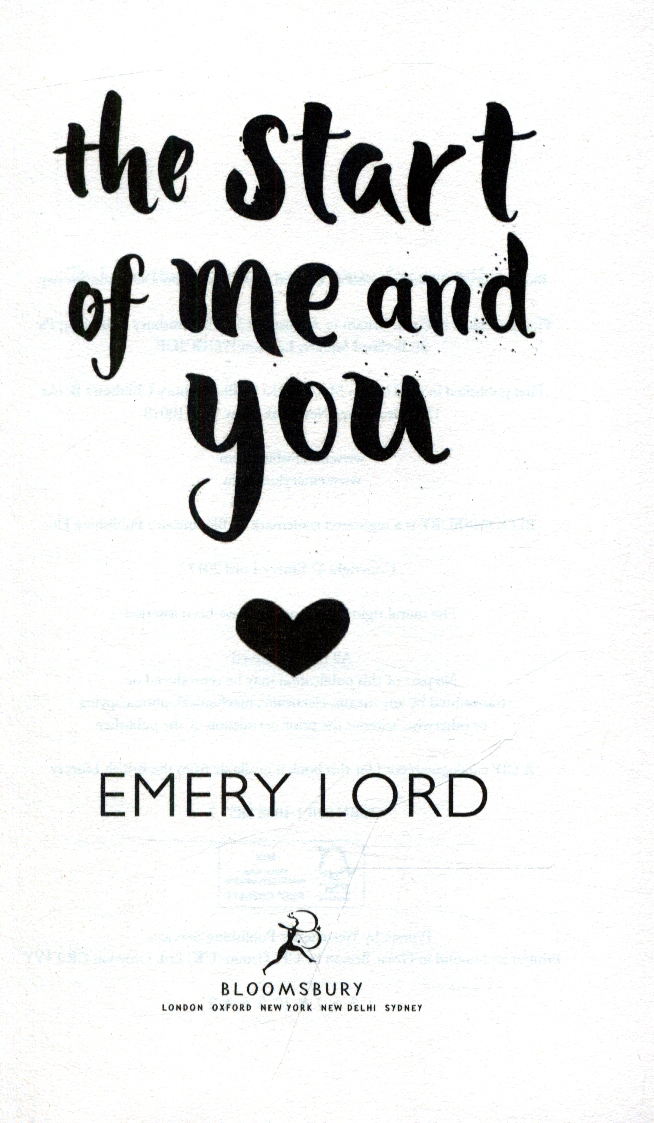 the start
of me and
you
EMERY LORD
BLOOMSBURY
LONDON OXFORD NEW YORK NEW DELHI SYDNEY